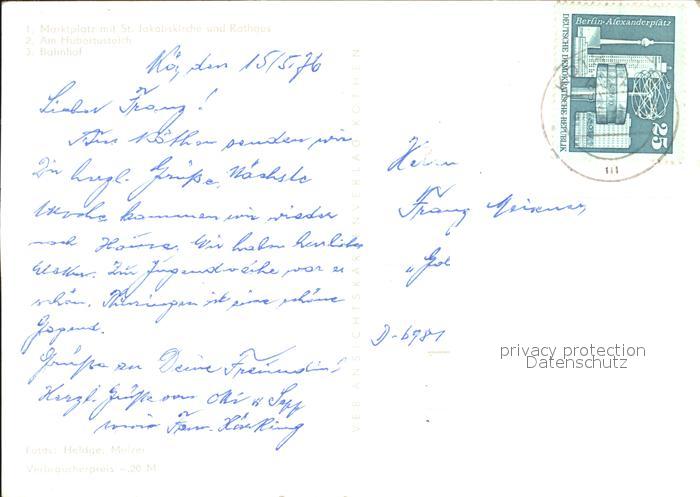 1. Marktplatz mit St. Jakobskirche und Rathaus
2. Am Hubertusteich
3. Bahnhof
Berlin-Alexanderplatz
DEUTSCHE DEMOKRATISCHE REPUBLIK
25
den 15/5.76
Lieber Franz!
Aus Köthen senden wir
Dir herzl. Grüße. Nächste
Woche kommen wir wieder
nach Hause. Wir haben herrliches
Wetter. Zur Jugendweihe war es
schön. Thüringen ist eine schöne
Gegend.
Grüße an Deine Freundin!
Herzl. Grüße von u Sepp
sowie Fam.
Herrn
Franz
D-6981
privacy protection
Datenschutz
Fotos: Heldge, Melzer
Verbraucherpreis -,20 M